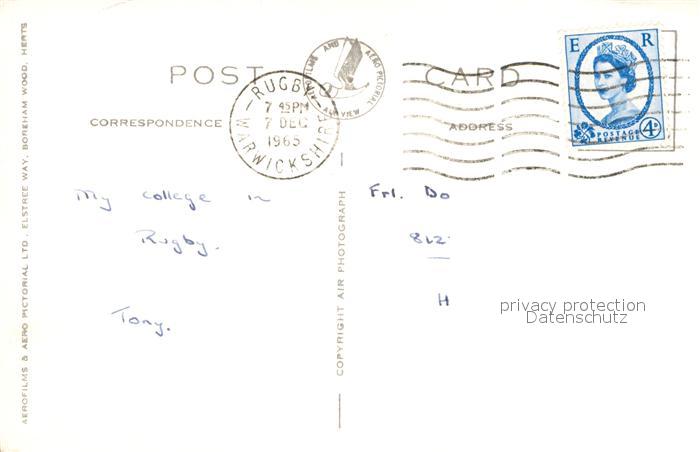 POST CARD
AEROFILMS AND AERO PICTORIAL
AIR VIEW
RUGBY
7 45PM
7 DEC
1965
WARWICKSHIRE
E R
POSTAGE
REVENUE
4D
CORRESPONDENCE
ADDRESS
My college in
Rugby.
Tony.
Frl. Do
H
privacy protection
Datenschutz
COPYRIGHT AIR PHOTOGRAPH
AEROFILMS & AERO PICTORIAL LTD., ELSTREE WAY, BOREHAM WOOD, HERTS